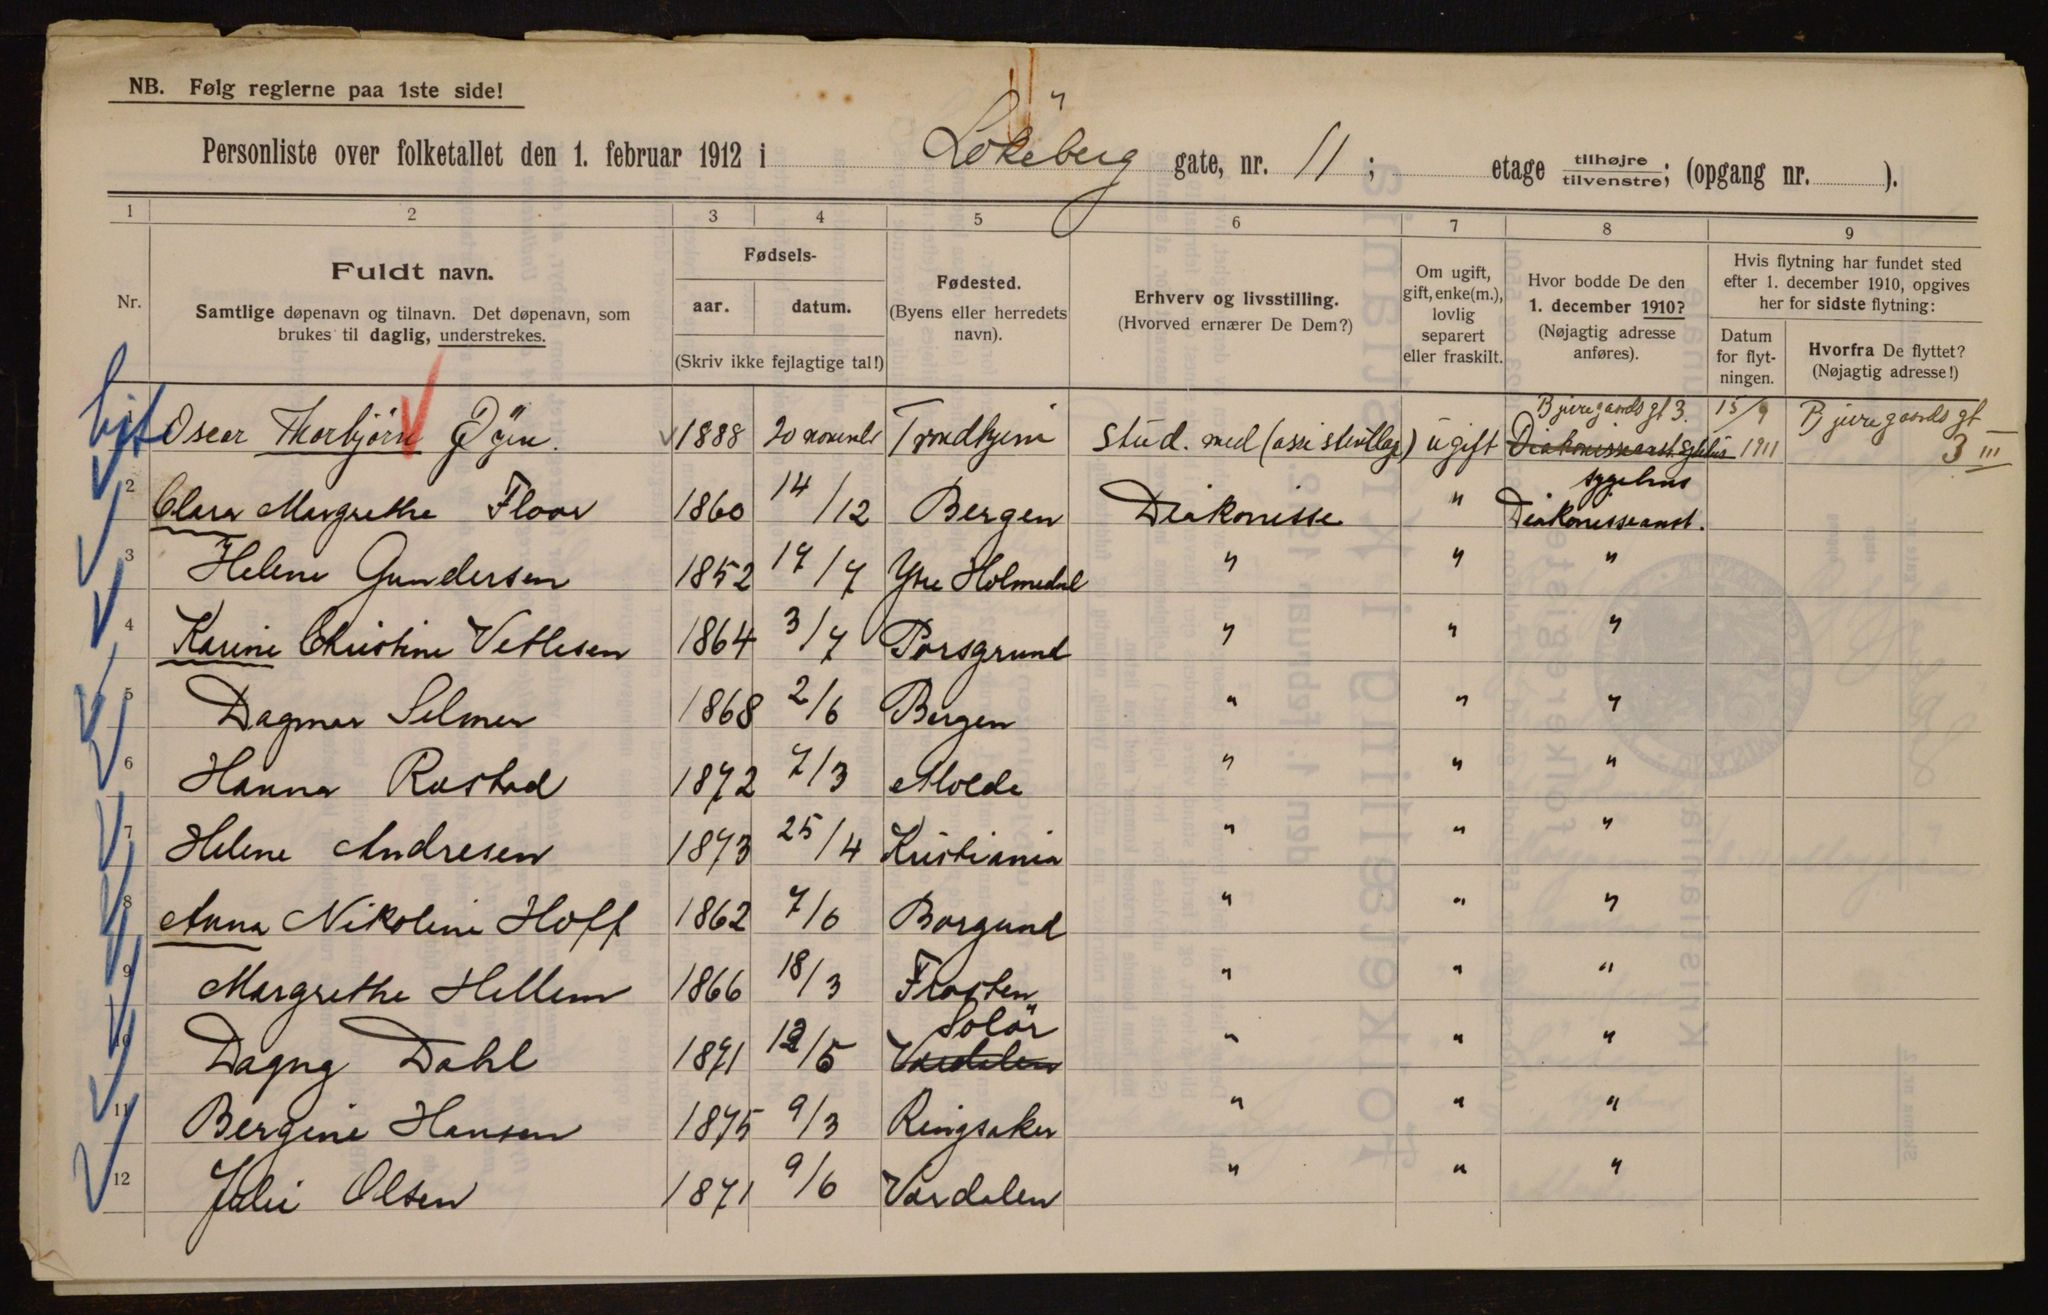 NB. Følg reglerne paa 1ste side!
Personliste over folketallet den 1. februar 1912 i Lökeberg gate, nr. 11; etage tilhøjre tilvenstre; (opgang nr. ).
1 2 3 4 5 6 7 8 9
Nr.
Fuldt navn.
Samtlige døpenavn og tilnavn. Det døpenavn, som
brukes til daglig, understrekes.
Fødsels-
aar. datum.
(Skriv ikke fejlagtige tal!)
Fødested.
(Byens eller herredets
navn).
Erhverv og livsstilling.
(Hvorved ernærer De Dem?)
Om ugift,
gift, enke(m.),
lovlig
separert
eller fraskilt.
Hvor bodde De den
1. december 1910?
(Nøjagtig adresse
anføres).
Hvis flytning har fundet sted
efter 1. december 1910, opgives
her for sidste flytning:
Datum
for flyt-
ningen.
Hvorfra De flyttet?
(Nøjagtig adresse!)
Oscar Thorbjörn 1888 20 novemb Trondhjem stud. med (assistentlæge) ugift Bjeregaards gt 3. Diakonisseanst. 15/9 1911 Bjeregaards gt 3 III
2 Clara Margrethe Floor 1860 14/12 Bergen Diakonisse " Diakonisseanst. sygehus
3 Helene Gundersen 1852 17/7 Ytre Holmedal " " "
4 Karine Christine Vetlesen 1864 3/7 Porsgrund " " "
5 Dagmar Selmer 1868 2/6 Bergen " " "
6 Hanna Rustad 1872 7/3 Molde " " "
7 Helene Andresen 1873 25/4 Kristiania " " "
8 Anna Nikoline Hoff 1862 7/6 Borgund " " "
9 Margrethe Hellem 1866 18/3 Frosten " " "
10 Dagny Dahl 1871 12/5 Solör Værdalen " " "
11 Bergine Hansen 1875 9/3 Ringsaker " " "
12 Julie Olsen 1871 9/6 Værdalen " " "